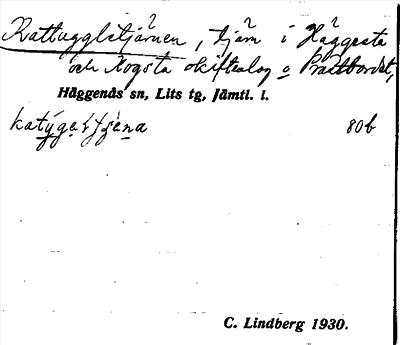 Kattugglstjärnen, tjärn i Häggesta
och Kogsta skifteslag o Prästbordet,
Häggenås sn, Lits tg, Jämtl. l.
80b
C. Lindberg 1930.